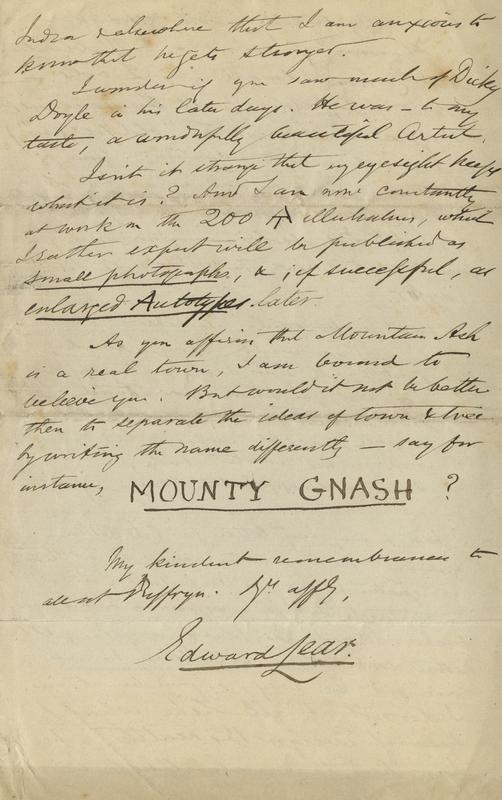 India & elsewhere that I am anxious to
know that he gets stronger.
I wonder if you saw much of Dicky
Doyle in his later days. He was — to my
taste, a wonderfully beautiful Artist.
Isn't it strange that my eyesight keeps
what it is? And I am now constantly
at work on the 200 AT illustrations, which
I rather expect will be published as
small photographs, &, if successful, as
enlarged Autotypes later.
As you affirm that Mountain Ash
is a real town, I am bound to
believe you. But would it not be better
then to separate the ideas of town & tree
by writing the name differently — say for
instance, MOUNTY GNASH ?
My kindest remembrances to
all at Duffryn. Yrs affly,
Edward Lear.